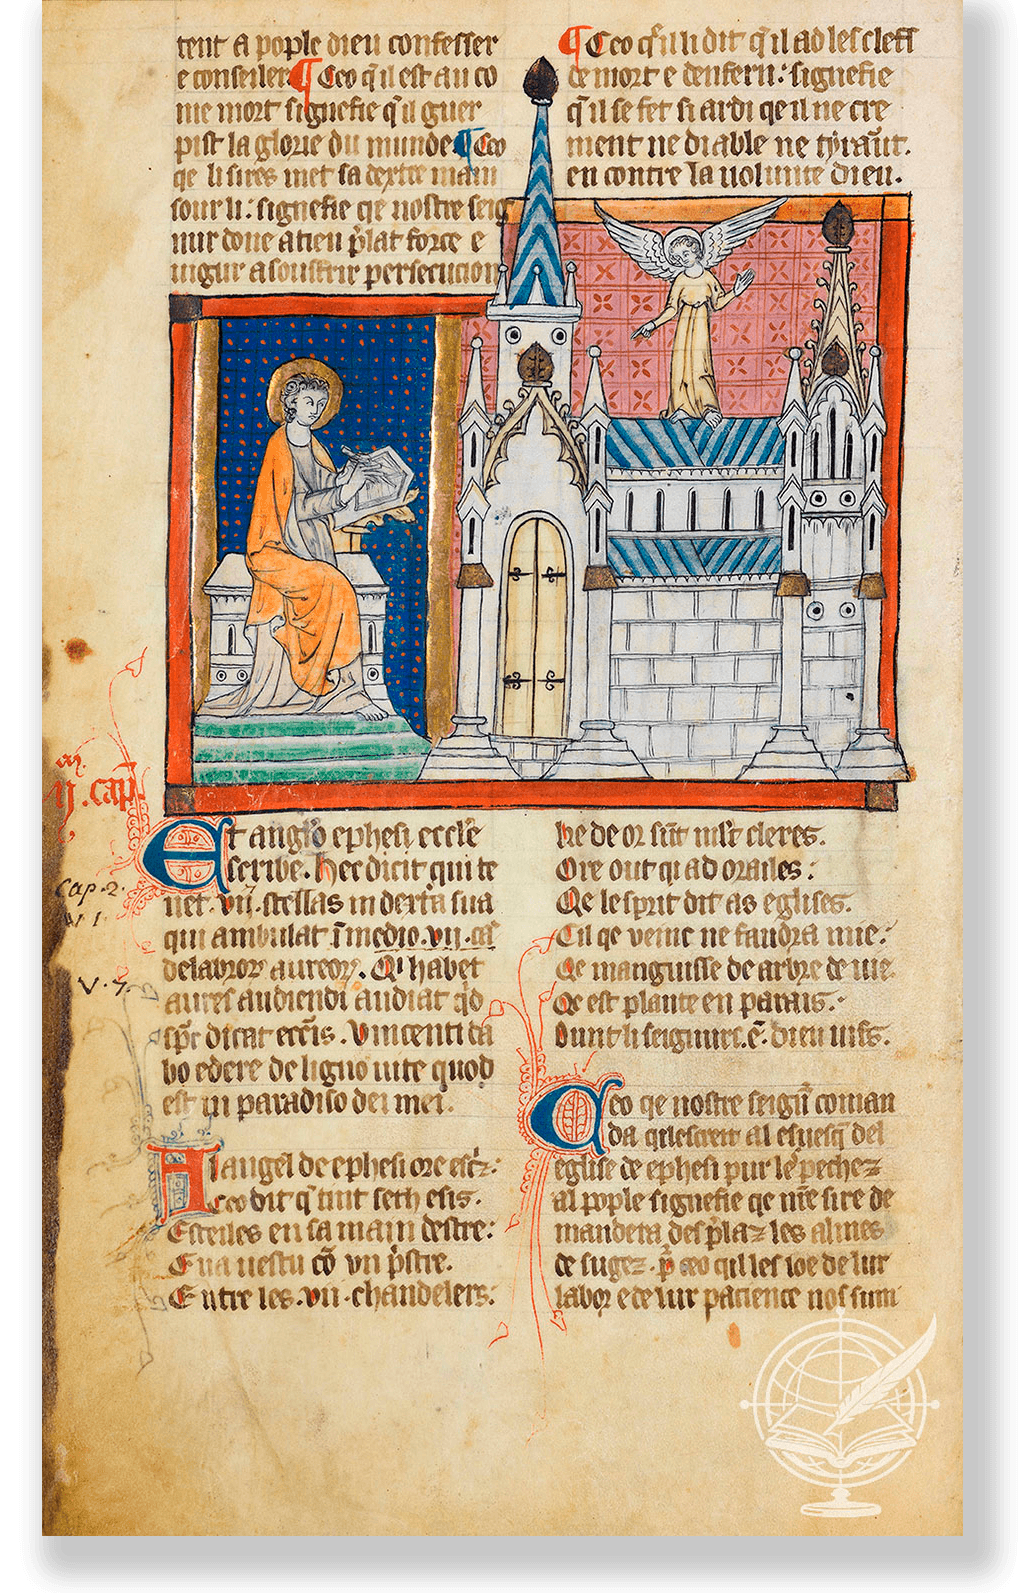 tent a pople dieu confesser
e conseiler. ¶ Ceo q̃ il est au co
me mort signefie q̃ il guer
pist la glorie du munde. ¶ Ceo
qe li sires met sa dextre main
sour li : signefie qe nostre seig
nur doue a tieu p̃lat force e
uigur a souffrir persecucion
¶ Ceo q̃ il li dit q̃ il ad les cleff
de mort e denfern : signefie
q̃ il se fet si ardi qe il ne cre
ment ne diable ne tyraũt.
en contre la uolunte dieu.
ij. cap̃
Cap. 2.
V 1
V. 7.
Et anglo ephesi eccl̃e
scribe. Hec dicit qui te
net .vij. stellas in dext̃a sua
qui ambulat ĩ medio .vij. cã
delabror̃ aureor̃. Qi habet
aures audiendi audiat qd̃
sp̃c dicat ecc̃iis. Vincenti da
bo edere de ligno uite quod
est in paradiso dei mei.
Al angel de ephesi ore escr̃:
Ceo dit q̃ tint seth esis.
Esteiles en sa main destre:
E va uestu cõ vn p̃stre.
Entre les .vii. chandelers:
de or sũt
cleres.
Ore out qi ad orailes :
Qe le sprit dit as eglises.
Cil qe veint ne faudra mie :
Qe manguisse de arbre de uie
Qe est plante en parais :
Dunt li seignurs .ẽ. dieu uifs.
Ceo qe nostre seigñ coman
da qil escrew al euesq̃ del
eglise de ephesi pur le pechez
al pople signefie qe nr̃e sire de
mandera des p̃laz les almes
de sugez . p̃ ceo qil les ioe de lur
labor e de lur pacience nos sum